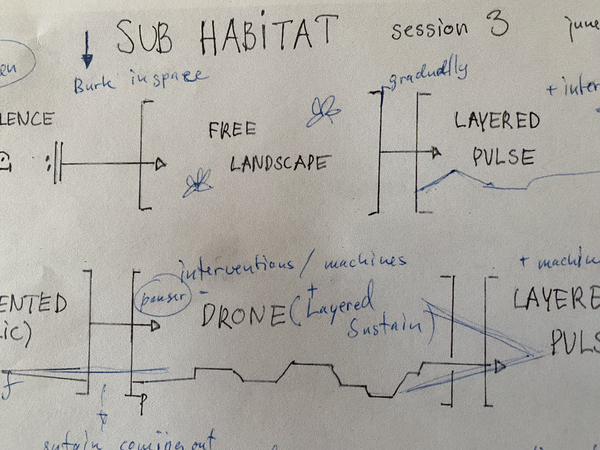 SUB HABITAT session 3 june
Burk in space
gradually
+ inter
LENCE
FREE
LANDSCAPE
LAYERED
PULSE
interventions / machines
+ machin
ENTED
IC)
DRONE (+ Layered
Sustain)
LAYERE
PULS
f
p
sustain coming out